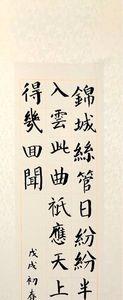 錦城絲管日紛紛半
入雲此曲祇應天上
得幾回聞
戊戌初春